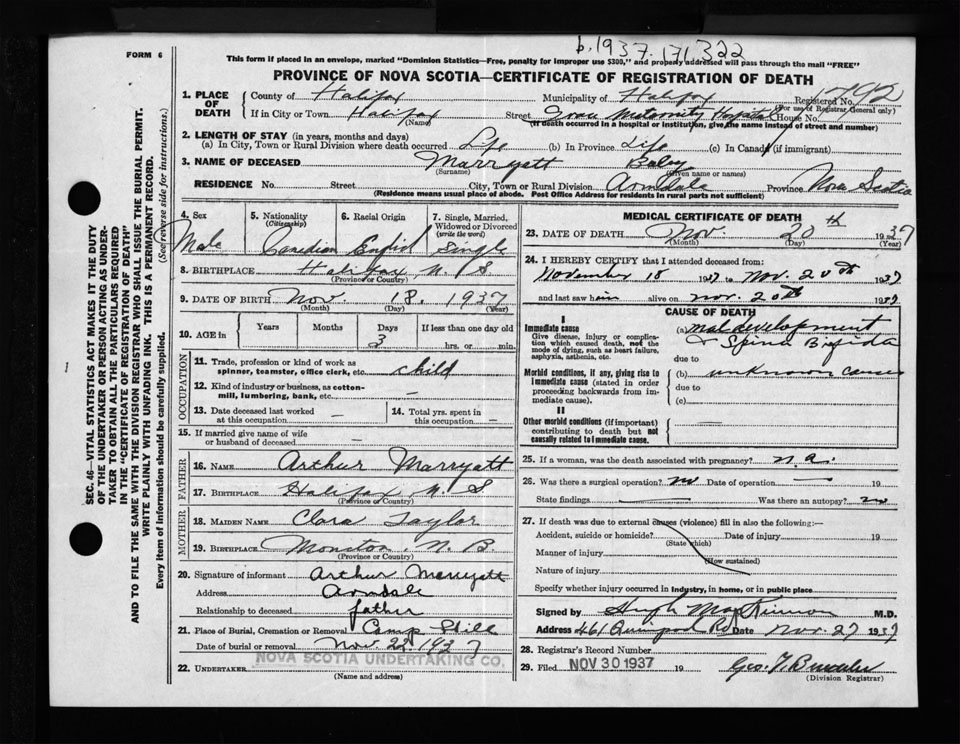 b.1937.171322
FORM 6
This form if placed in an envelope, marked "Dominion Statistics—Free, penalty for improper use $300," and properly addressed will pass through the mail "FREE"
PROVINCE OF NOVA SCOTIA—CERTIFICATE OF REGISTRATION OF DEATH
1. PLACE OF DEATH
County of Halifax Municipality of Halifax Registered No. 1792
(For use of Registrar General only)
If in City or Town Halifax Street Grace Maternity Hospital House No.
(Name) (If death occurred in a hospital or institution, give the name instead of street and number)
2. LENGTH OF STAY (in years, months and days)
(a) In City, Town or Rural Division where death occurred Life (b) In Province Life (c) In Canada (if immigrant)
3. NAME OF DECEASED Marryatt Baby
(Surname) (Given name or names)
RESIDENCE No. Street City, Town or Rural Division Armdale Province Nova Scotia
(Residence means usual place of abode. Post Office Address for residents in rural parts not sufficient)
4. Sex Male
5. Nationality (Citizenship) Canadian
6. Racial Origin English
7. Single, Married, Widowed or Divorced (write the word) Single
8. BIRTHPLACE Halifax N. S.
(Province or Country)
9. DATE OF BIRTH Nov. 18. 1937
(Month) (Day) (Year)
10. AGE in Years Months Days If less than one day old
3 hrs. or min.
OCCUPATION
11. Trade, profession or kind of work as spinner, teamster, office clerk, etc. child
12. Kind of industry or business, as cotton-mill, lumbering, bank, etc. —
13. Date deceased last worked at this occupation —
14. Total yrs. spent in this occupation —
15. If married give name of wife or husband of deceased —
FATHER
16. NAME Arthur Marryatt
17. BIRTHPLACE Halifax N. S.
(Province or Country)
MOTHER
18. MAIDEN NAME Clara Taylor
19. BIRTHPLACE Moncton, N. B.
(Province or Country)
20. Signature of informant Arthur Marryatt
Address Armdale
Relationship to deceased father
21. Place of Burial, Cremation or Removal Camp Hill
Date of burial or removal Nov. 22 1937
22. UNDERTAKER NOVA SCOTIA UNDERTAKING CO.
(Name and address)
MEDICAL CERTIFICATE OF DEATH
23. DATE OF DEATH Nov. 20th 1937
(Month) (Day) (Year)
24. I HEREBY CERTIFY that I attended deceased from:
November 18 1937 to Nov. 20th 1937
and last saw him alive on Nov. 20th 1937
CAUSE OF DEATH
I
Immediate cause
Give disease, injury or complication which caused death, not the mode of dying, such as heart failure, asphyxia, asthenia, etc.
(a) maldevelopment
& Spina Bifida
due to
Morbid conditions, if any, giving rise to immediate cause (stated in order proceeding backwards from immediate cause).
(b) unknown cause
due to
(c)
II
Other morbid conditions (if important) contributing to death but not causally related to immediate cause.
25. If a woman, was the death associated with pregnancy? n.a.
26. Was there a surgical operation? no Date of operation — 19
State findings Was there an autopsy? no
27. If death was due to external causes (violence) fill in also the following:—
Accident, suicide or homicide? Date of injury 19
(State which)
Manner of injury
(How sustained)
Nature of injury
Specify whether injury occurred in industry, in home, or in public place
Signed by Hugh MacKinnon M.D.
Address 461 Quinpool Rd Date Nov. 27 1937
28. Registrar's Record Number
29. Filed NOV 30 1937 19 Geo. T.
(Division Registrar)
SEC. 46—VITAL STATISTICS ACT MAKES IT THE DUTY
OF THE UNDERTAKER OR PERSON ACTING AS UNDER-
TAKER TO OBTAIN ALL THE PARTICULARS REQUIRED
IN THE "CERTIFICATE OF REGISTRATION OF DEATH"
AND TO FILE THE SAME WITH THE DIVISION REGISTRAR WHO SHALL ISSUE THE BURIAL PERMIT.
WRITE PLAINLY WITH UNFADING INK. THIS IS A PERMANENT RECORD.
Every item of information should be carefully supplied. (See reverse side for instructions.)